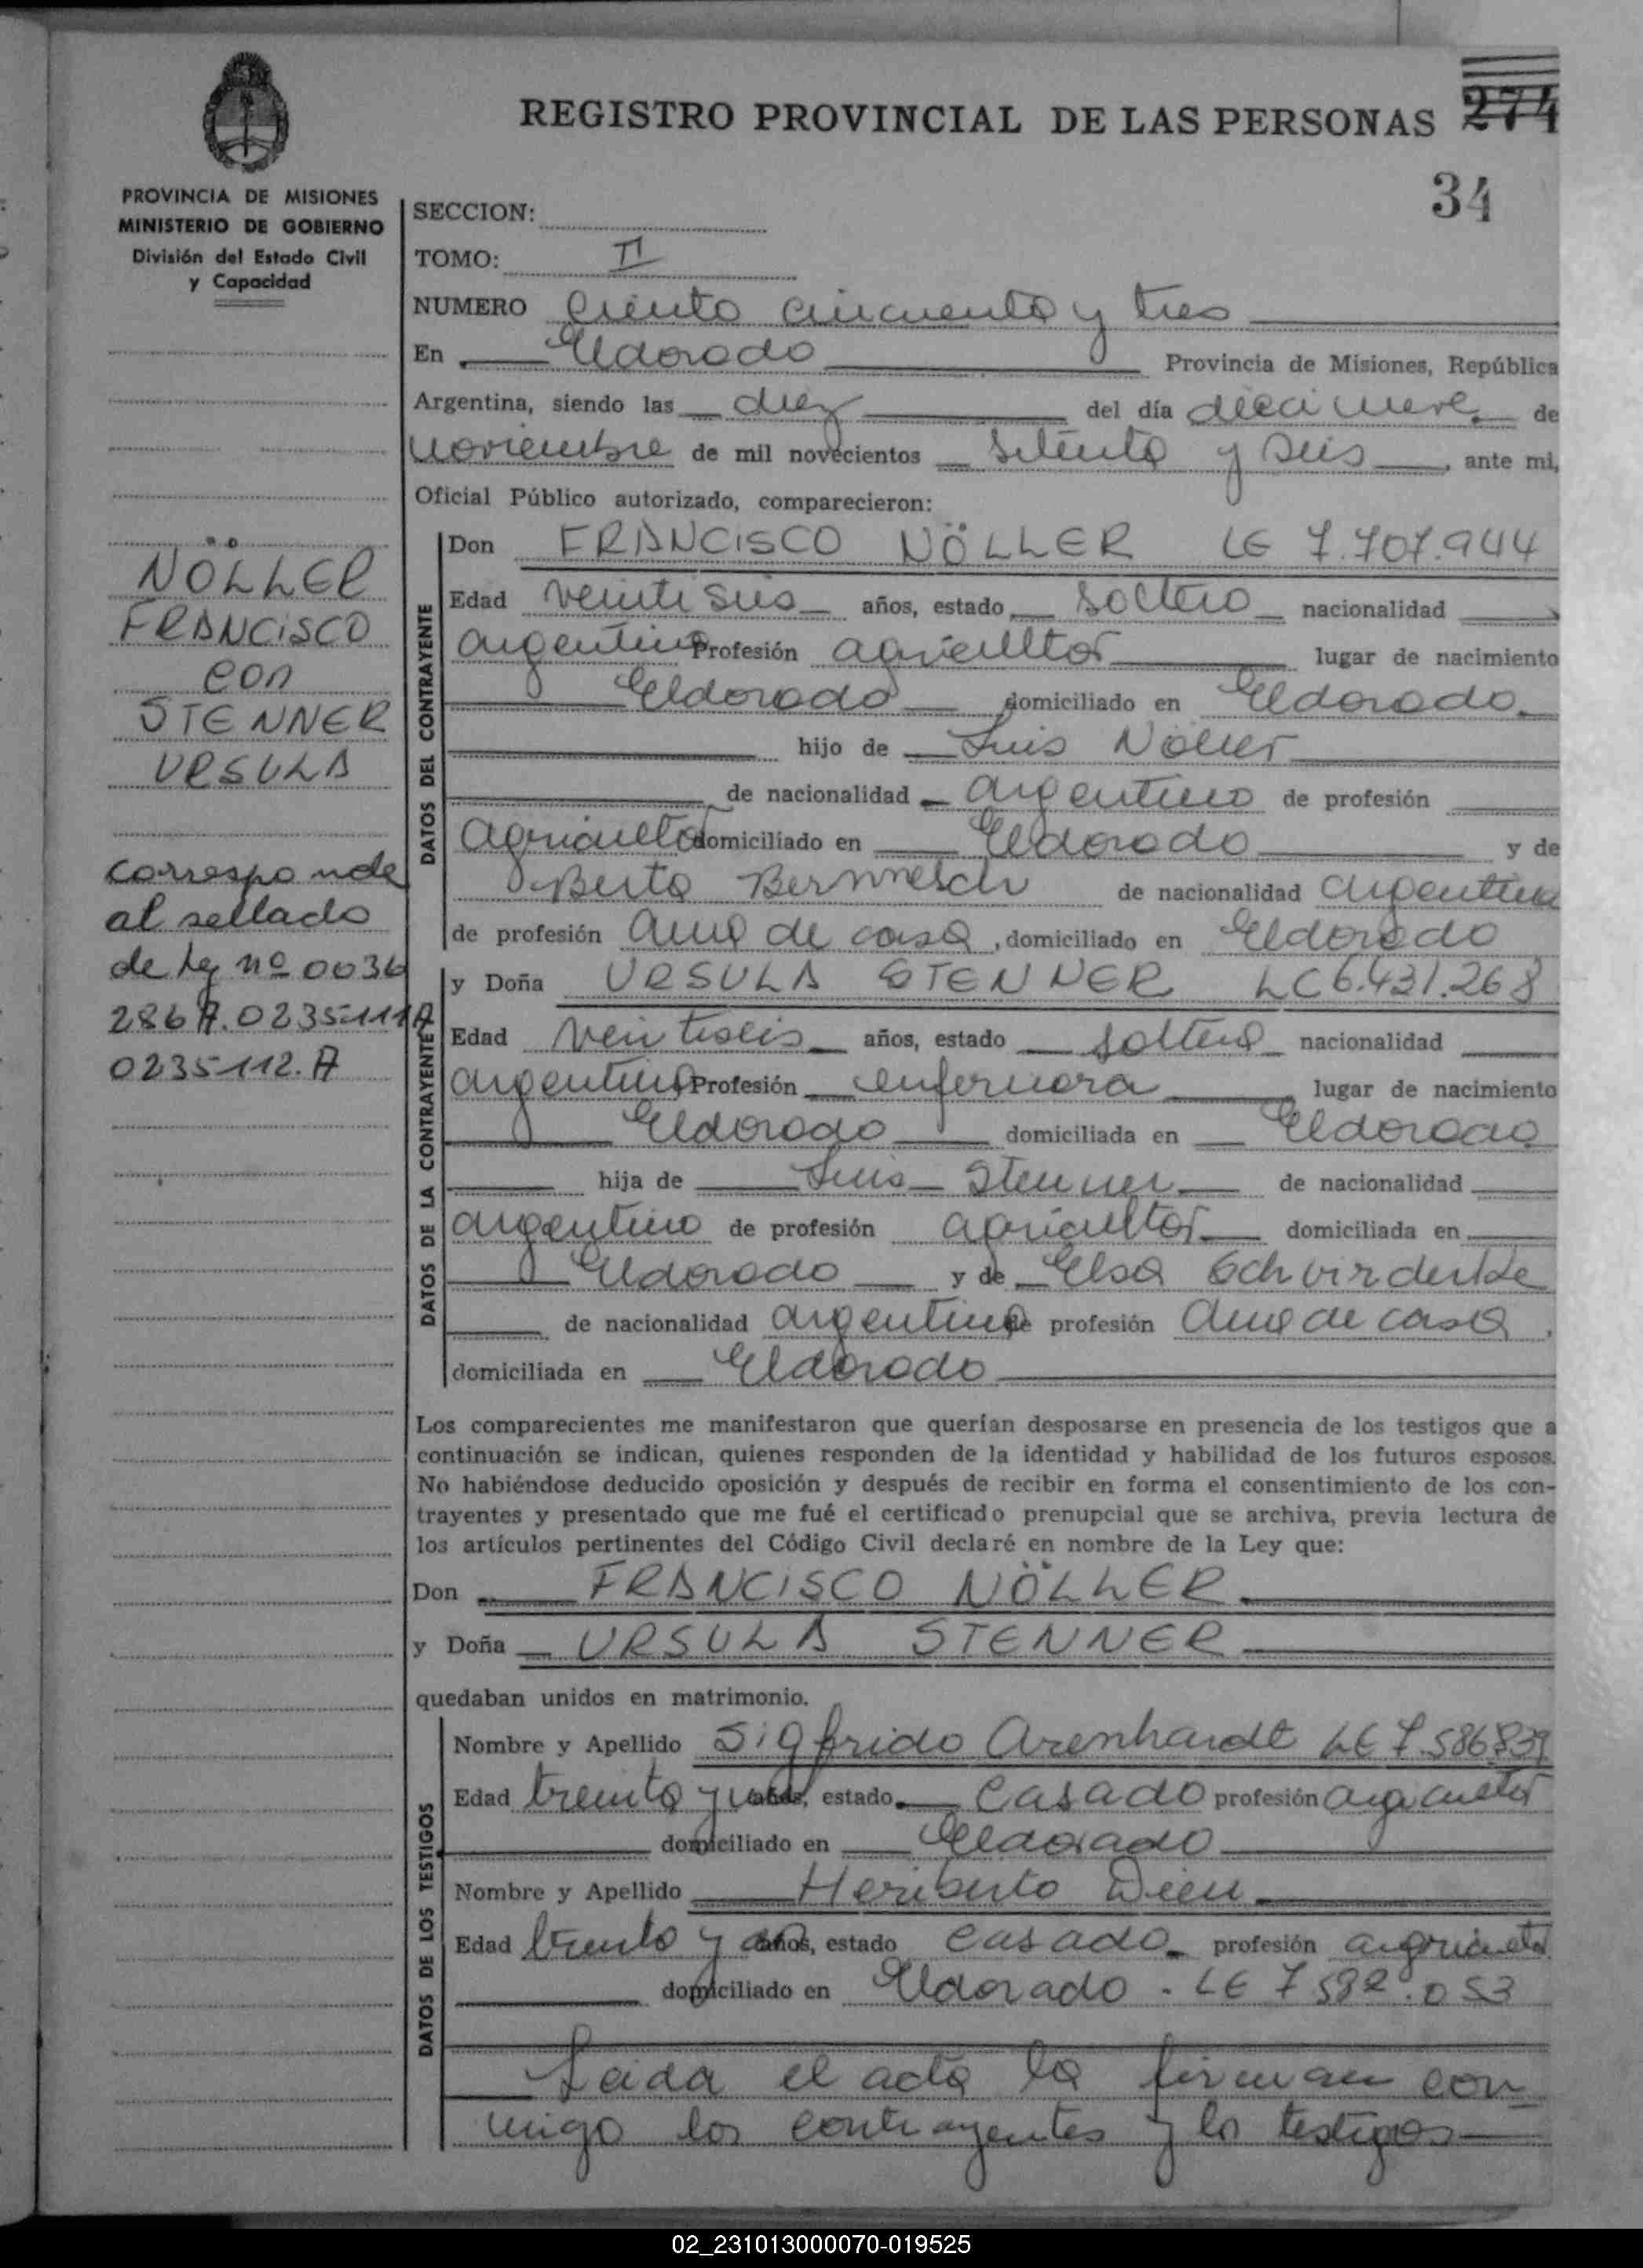 REGISTRO PROVINCIAL DE LAS PERSONAS 274
34
PROVINCIA DE MISIONES
MINISTERIO DE GOBIERNO
División del Estado Civil
y Capacidad
NÖLLER
FRANCISCO
con
STENNER
URSULA
corresponde
al sellado
de ley nº 0036
286 A. 0235111A
0235112.A
SECCION:
TOMO: II
NUMERO Ciento cincuenta y tres
En Eldorado Provincia de Misiones, República
Argentina, siendo las diez del día diecinueve de
noviembre de mil novecientos setenta y seis, ante mi,
Oficial Público autorizado, comparecieron:
DATOS DEL CONTRAYENTE
Don FRANCISCO NÖLLER LE 7.707.944
Edad veintiseis años, estado soltero nacionalidad
argentino Profesión agricultor lugar de nacimiento
Eldorado domiciliado en Eldorado
hijo de Luis Nöller
de nacionalidad argentino de profesión
agricultor domiciliado en Eldorado y de
Berta de nacionalidad argentina
de profesión ama de casa, domiciliado en Eldorado
DATOS DE LA CONTRAYENTE
y Doña URSULA STENNER LC 6.431.268
Edad veintiseis años, estado soltera nacionalidad
argentina Profesión enfermera lugar de nacimiento
Eldorado domiciliada en Eldorado
hija de Luis Stenner de nacionalidad
argentino de profesión agricultor domiciliada en
Eldorado y de Elsa
de nacionalidad argentina de profesión ama de casa,
domiciliada en Eldorado
Los comparecientes me manifestaron que querían desposarse en presencia de los testigos que a
continuación se indican, quienes responden de la identidad y habilidad de los futuros esposos.
No habiéndose deducido oposición y después de recibir en forma el consentimiento de los con-
trayentes y presentado que me fué el certificado prenupcial que se archiva, previa lectura de
los artículos pertinentes del Código Civil declaré en nombre de la Ley que:
Don FRANCISCO NÖLLER
y Doña URSULA STENNER
quedaban unidos en matrimonio.
DATOS DE LOS TESTIGOS
Nombre y Apellido Sigfrido Arenhardt LE 7.586839
Edad treinta y años, estado casado profesión agricultor
domiciliado en Eldorado
Nombre y Apellido Heriberto
Edad treinta y años, estado casado profesión agricultor
domiciliado en Eldorado - LE 7592.053
Leida el acta la firman con
migo los contrayentes y los testigos
02_231013000070-019525